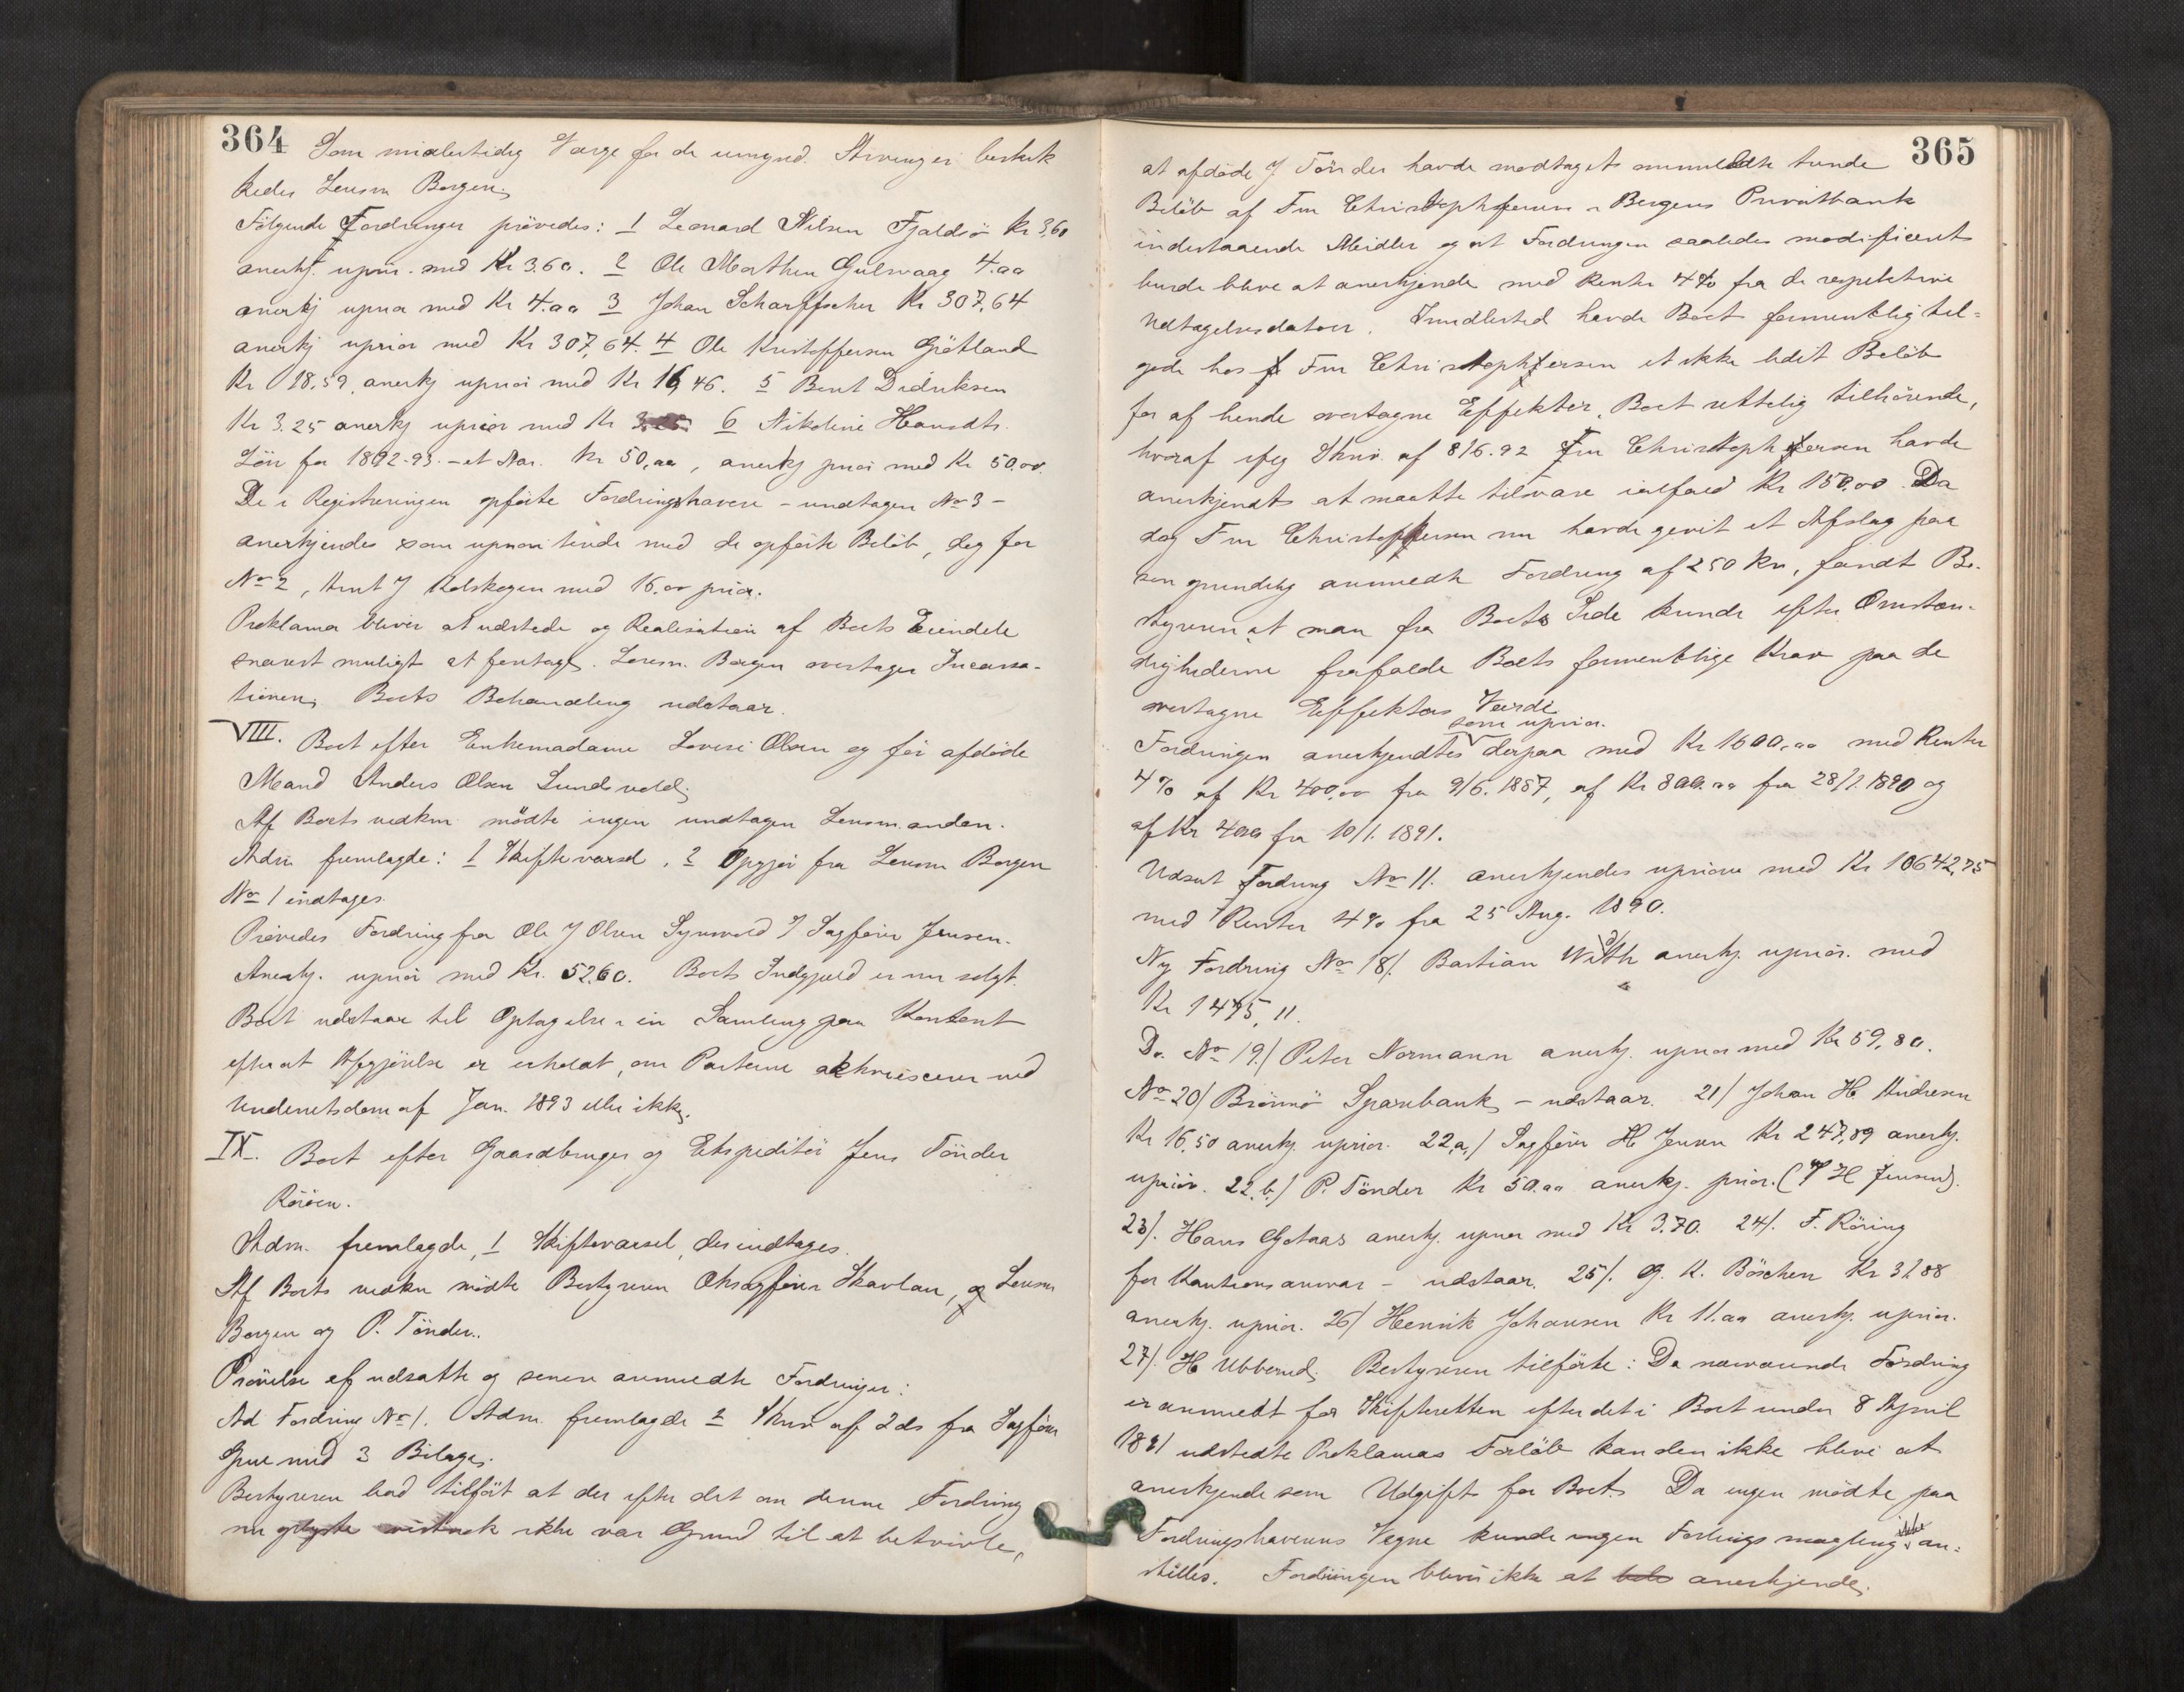 364
Som midlertidig Værge for de umynd. Arvinger beskik
kedes Lensm Borgen.
Følgende Fordringer prövedes: 1 Leonard Nilsen Fjeldsö Kr 3,60
anerkj. uprior. med Kr 3.60. 2 Ole Marthin Gulsvaag 4.00
anerkj uprior med Kr 4.00 3 Johan Scharffscher Kr 307,64
anerkj uprior med Kr 307,64. 4 Ole Kristoffersen Grötland
Kr 18,59, anerkj uprior med Kr 16,46. 5 Bent Didriksen
Kr 3.25 anerkj uprior med Kr 3.25 6 Nikoline Hansdts.
Lön for 1892-93.- et Aar. Kr 50,00, anerkj prior med Kr 50.00.
De i Registreringen opförte Fordringshavere - undtagen No 3 -
anerkjendes som uprioriterede med de opförte Beløb, dog for
No 2, Arnt J Kolskogen med 16.00 prior.
Proklama bliver at udstede og Realisation af Boets Eiendele
snarest muligt at foretage. Lensm. Borgen overtager Incassa-
tionen. Boets Behandling udstaar.
VIII. Boet efter Enkemadame Lovise Olsen og för afdöde
Mand Anders Olsen Sundsvold.
Af Boets vedkm mödte ingen undtagen Lensmanden.
Adm fremlagde: 1 Skiftevarsel. 2 Opgjör fra Lensm Borgen
No 1 indtages.
Prövedes Fordring fra Ole J Olsen Synsvold v/ Sagförer Jensen.
Anerkj. uprior med Kr. 52.60. Boets Indgjæld er nu solgt.
Boet udstaar til Optagelse i en Samling paa Kontoret
efterat Afgjörelse er erholdt, om Parterne akkviescerer ved
Underretsdom af Jan. 1893 eller ikke.
IX. Boet efter Gaardbruger og Ekspeditör Jens Tönder
Röröen.
Adm. fremlagde, 1 Skiftevarsel, der indtages.
Af Boets vedkm mödte Bestyreren Oksagförer Skavlan, og Lensm
Borgen og P. Tönder.
Prövelse af udsatte og senere anmeldte Fordringer:
Ad Fordring No 1. Adm. fremlagde 2 Skriv af 2ds fra Sagförer
Grue med 3 Bilage.
Bestyreren bad tilfört at der efter det om denne Fordring
nu oplyste vistnok ikke var Grund til at betvivle,
365
at afdöde J Tönder havde modtaget anmeldte tvende
Belöb af Fru Christophersens i Bergens Privatbank
indestaaende Midler og at Fordringen saaledes modificeret
burde blive at anerkjende med Renter 4% fra de respektive
Udtagelsesdatoer. Imidlertid havde Boet formentlig til-
gode hos Fru Christophersen et ikke lidet Belöb
for af hende overtagne Effekter, Boet rettelig tilhörende,
hvoraf ifg Skriv. af 8/6.92 Fru Christophersen havde
anerkjendt at maatte tilsvare ialfald Kr 150.00. Da
dog Fru Christophersen nu havde gevit et Afslag paa
sin grundig anmeldte Fordring af 250 Kr, fandt Be-
styreren, at man fra Boets Side kunde efter Omstæn-
dighederne frafalde Boets formentlige Krav paa de
overtagne Effekters Værdi
som uprior.
Fordringen anerkjendtes derpaa med Kr 1600,00 med Renter
4% af Kr 400,00 fra 9/6. 1887, af Kr 800.00 fra 28/1.1890 og
af Kr 400 fra 10/1. 1891.
Udsat Fordring No 11. anerkjendes uprior med Kr 10642,75
med Renter 4% fra 25 Aug. 1890.
Ny Fordring No 18/. Bastian With anerkj. uprior. med
Kr 1475, 11.
Do. No 19./ Peter Normann anerkj. uprior med Kr 59,80.
No 20/ Brönnö Sparebank - udstaar. 21/ Johan H Andresen
Kr 16,50 anerkj. uprior. 22,a,/ Sagförer H Jensen Kr 247,89 anerkj.
uprior. 22.b./ P. Tönder Kr 50.00 anerkj. prior. (v/ H Jensen).
23/. Hans Gotaas anerkj. uprior med Kr 3.70. 24/. F. Röring
for Kautionsansvar - udstaar. 25/. G. K. Böschen Kr 31.88
anerkj. uprior. 26/ Henrik Johansen Kr 11.00 anerkj. uprior.
27/. H Ubberud. Bestyreren tilförte: Da nærværende Fordring
er anmeldt for Skifteretten efter det i Boet under 8 April
1891 udstedte Proklamas Forlöb kan den ikke blive at
anerkjende som Udgift for Boet. Da ingen mödte paa
Fordringshaverens Vegne kunde ingen Forligsmægling ikke an-
stilles. Fordringen bliver ikke at anerkjende.